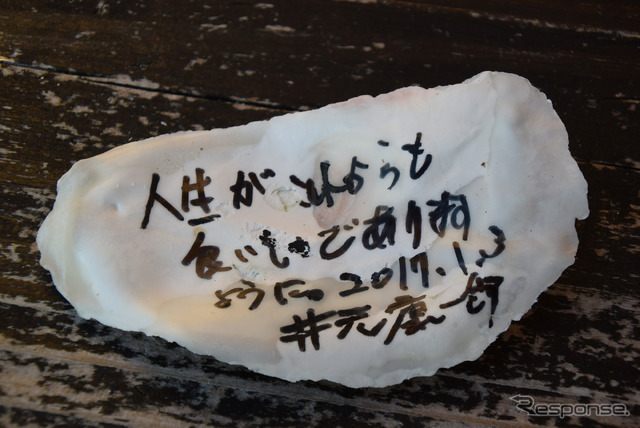 人生がどれようも
食いしんであります
ように。2017.1.3
井元康一郎
Response.